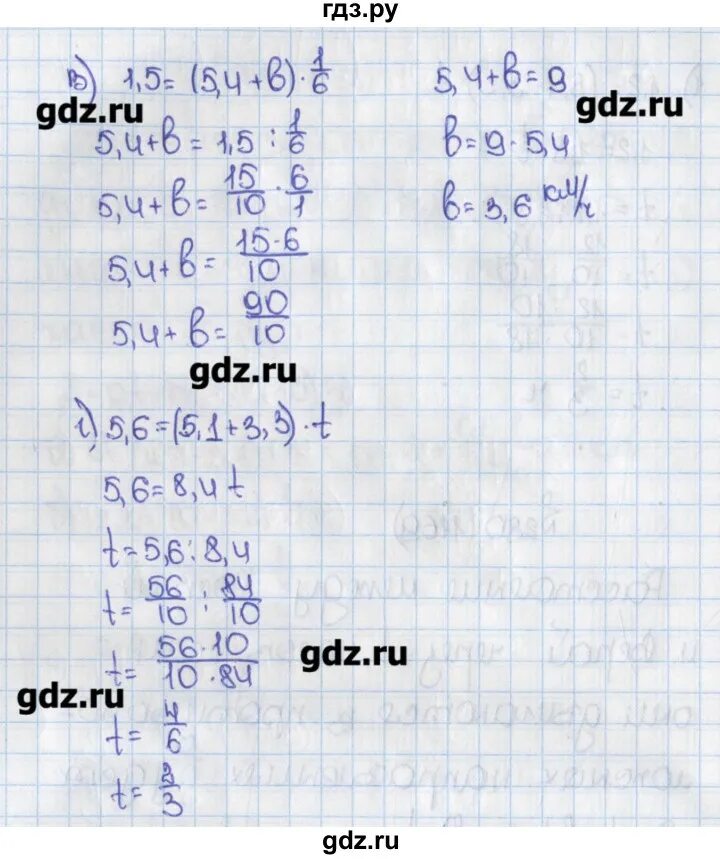 гдз.ру
в) 1,5 = (5,4 + в) · 1/6
5,4 + в = 1,5 : 1/6
5,4 + в = 15/10 · 6/1
5,4 + в = 15·6/10
5,4 + в = 90/10
5,4 + в = 9
в = 9 · 5,4
в = 3,6 км/ч
gdz.ru
gdz.ru
gdz.ru
г) 5,6 = (5,1 + 3,3) · t
5,6 = 8,4 t
t = 5,6 : 8,4
t = 56/10 : 84/10
t = 56·10/10·84
t = 4/6
t = 2/3
gdz.ru
gdz.ru
gdz.ru